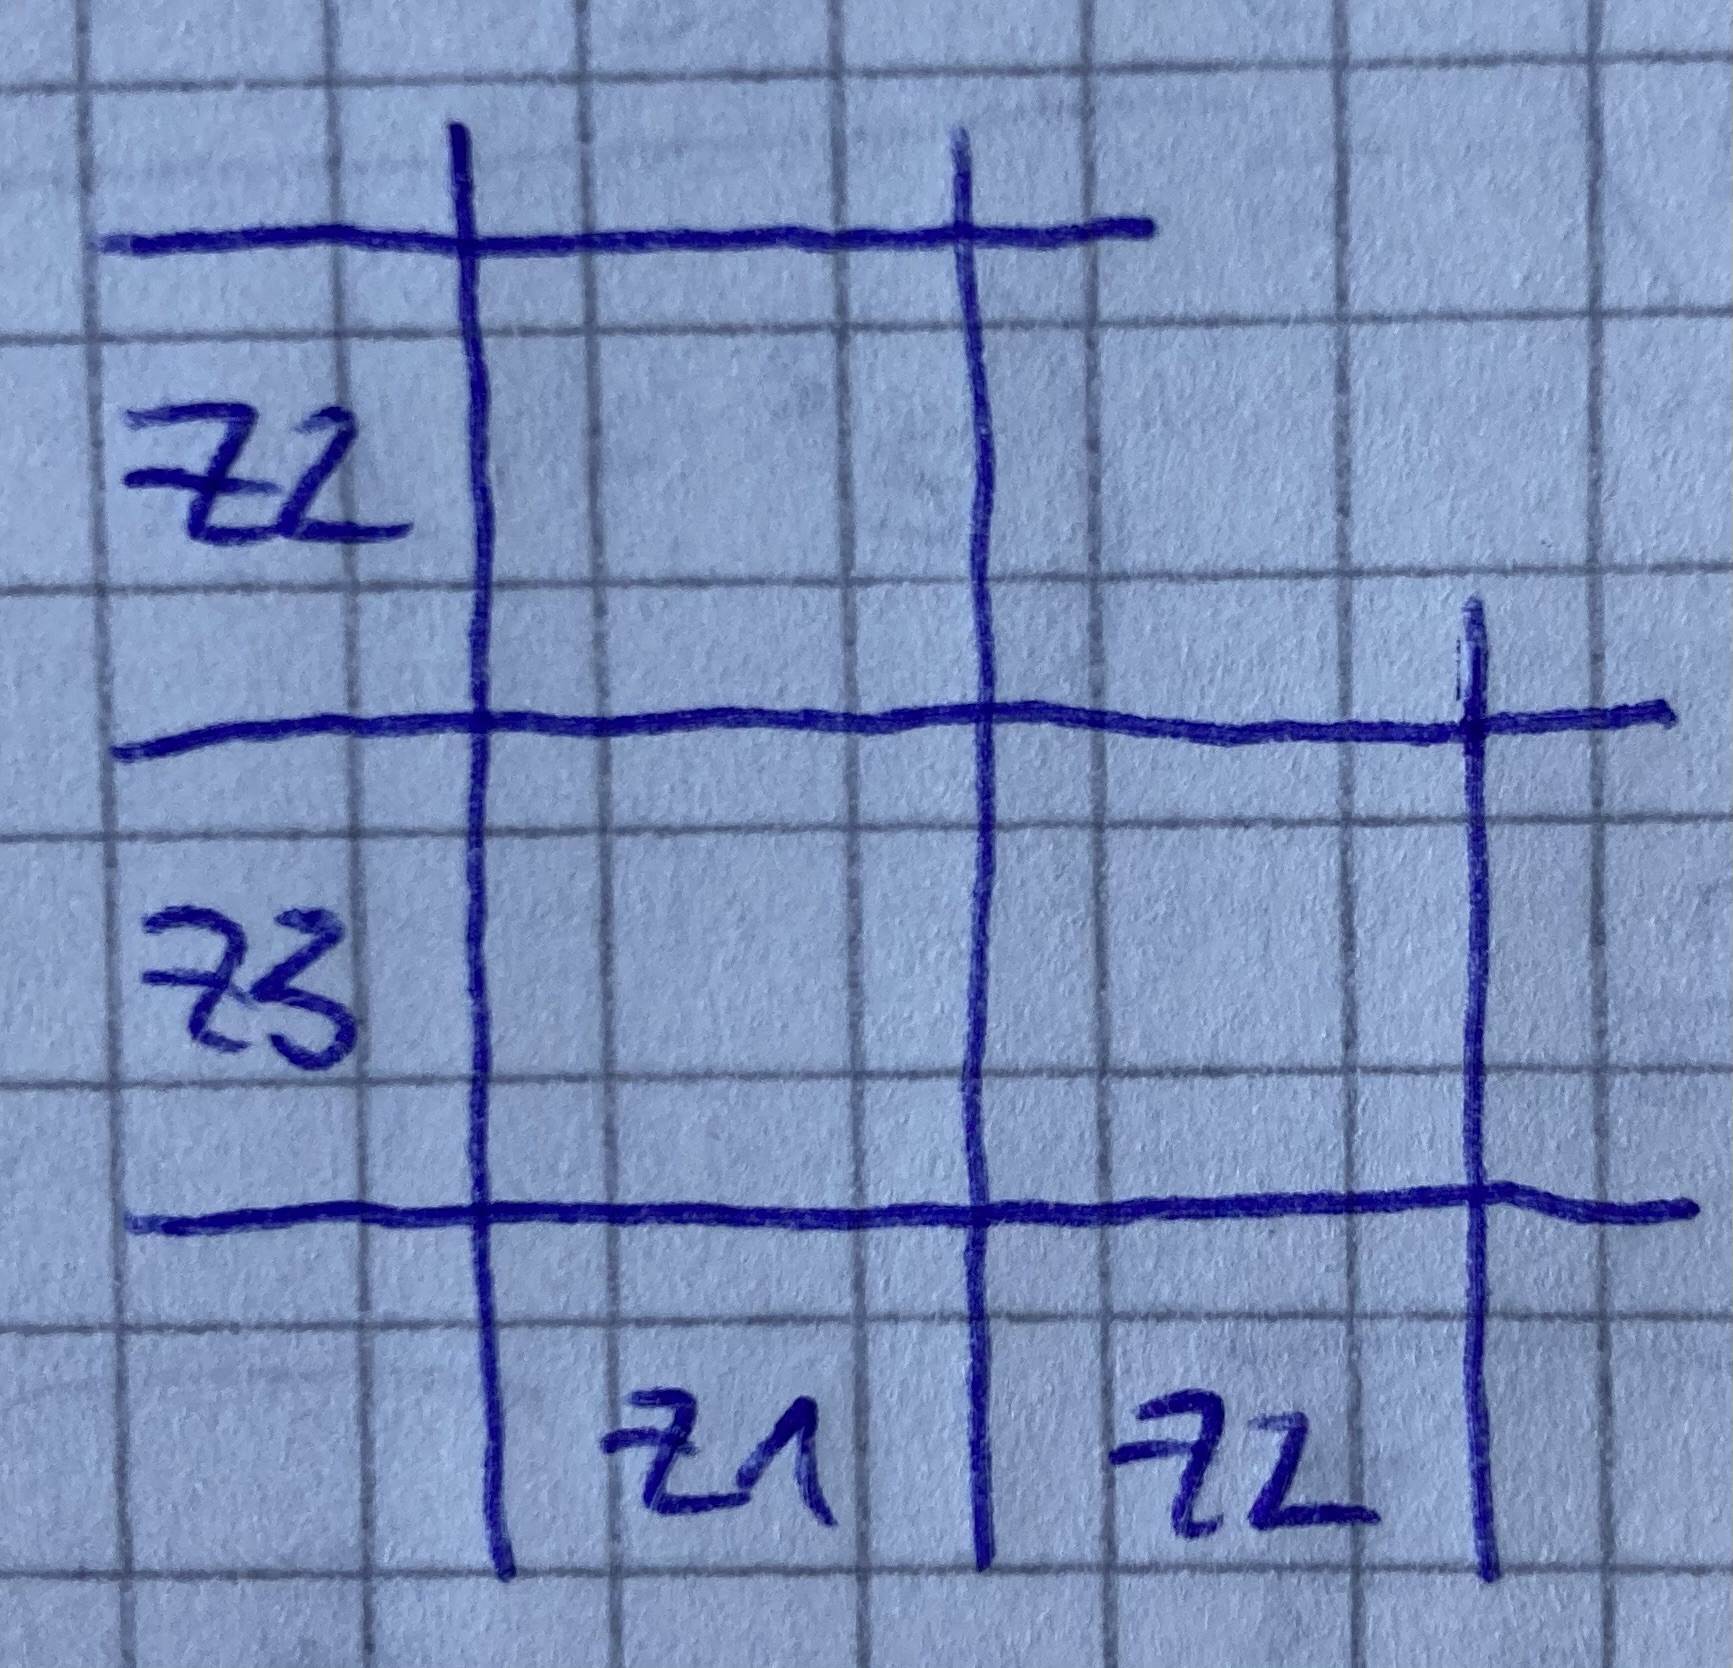 Z2
Z3
Z1 Z2